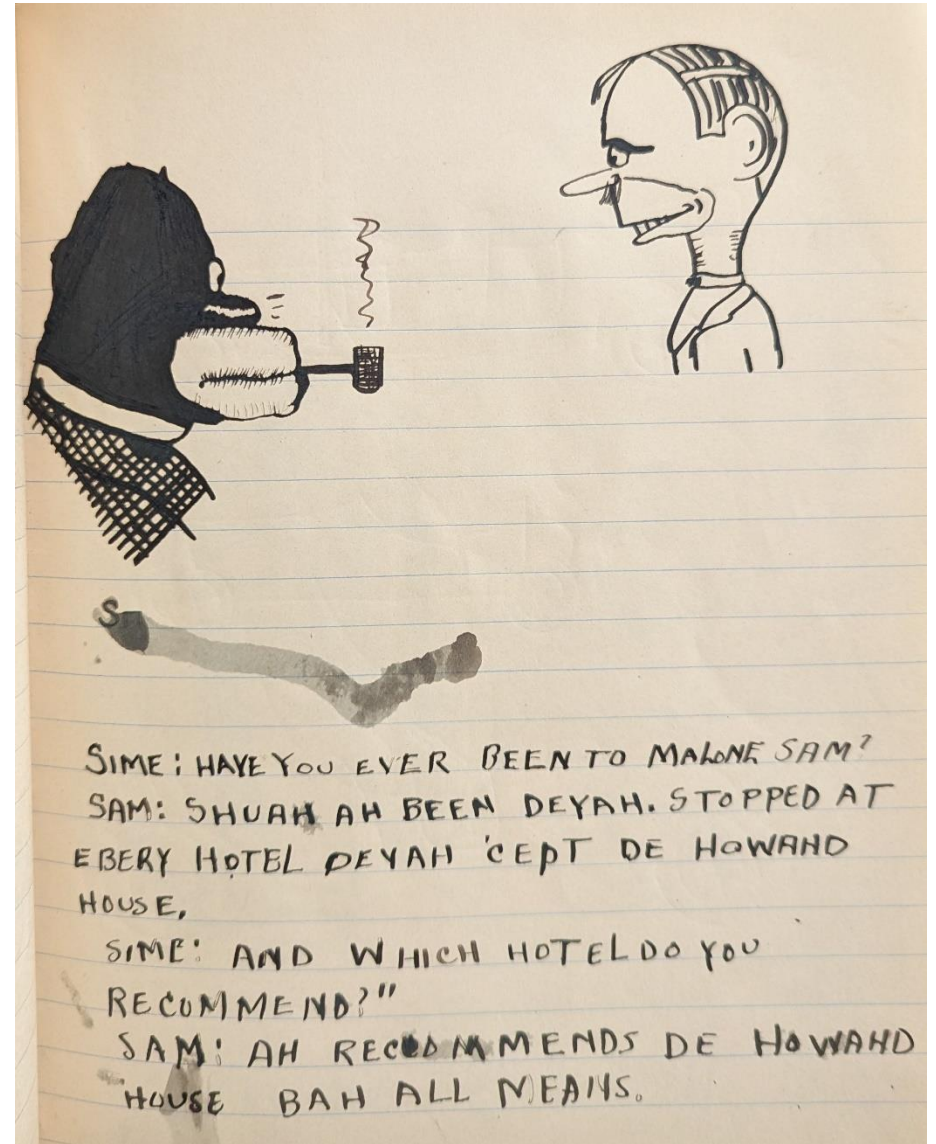 S
SIME: HAVE YOU EVER BEEN TO MALONE SAM?
SAM: SHUAH AH BEEN DEYAH. STOPPED AT
EBERY HOTEL DEYAH 'CEPT DE HOWAHD
HOUSE.
SIME: AND WHICH HOTEL DO YOU
RECOMMEND?"
SAM: AH RECOMMENDS DE HOWAHD
HOUSE BAH ALL MEANS.